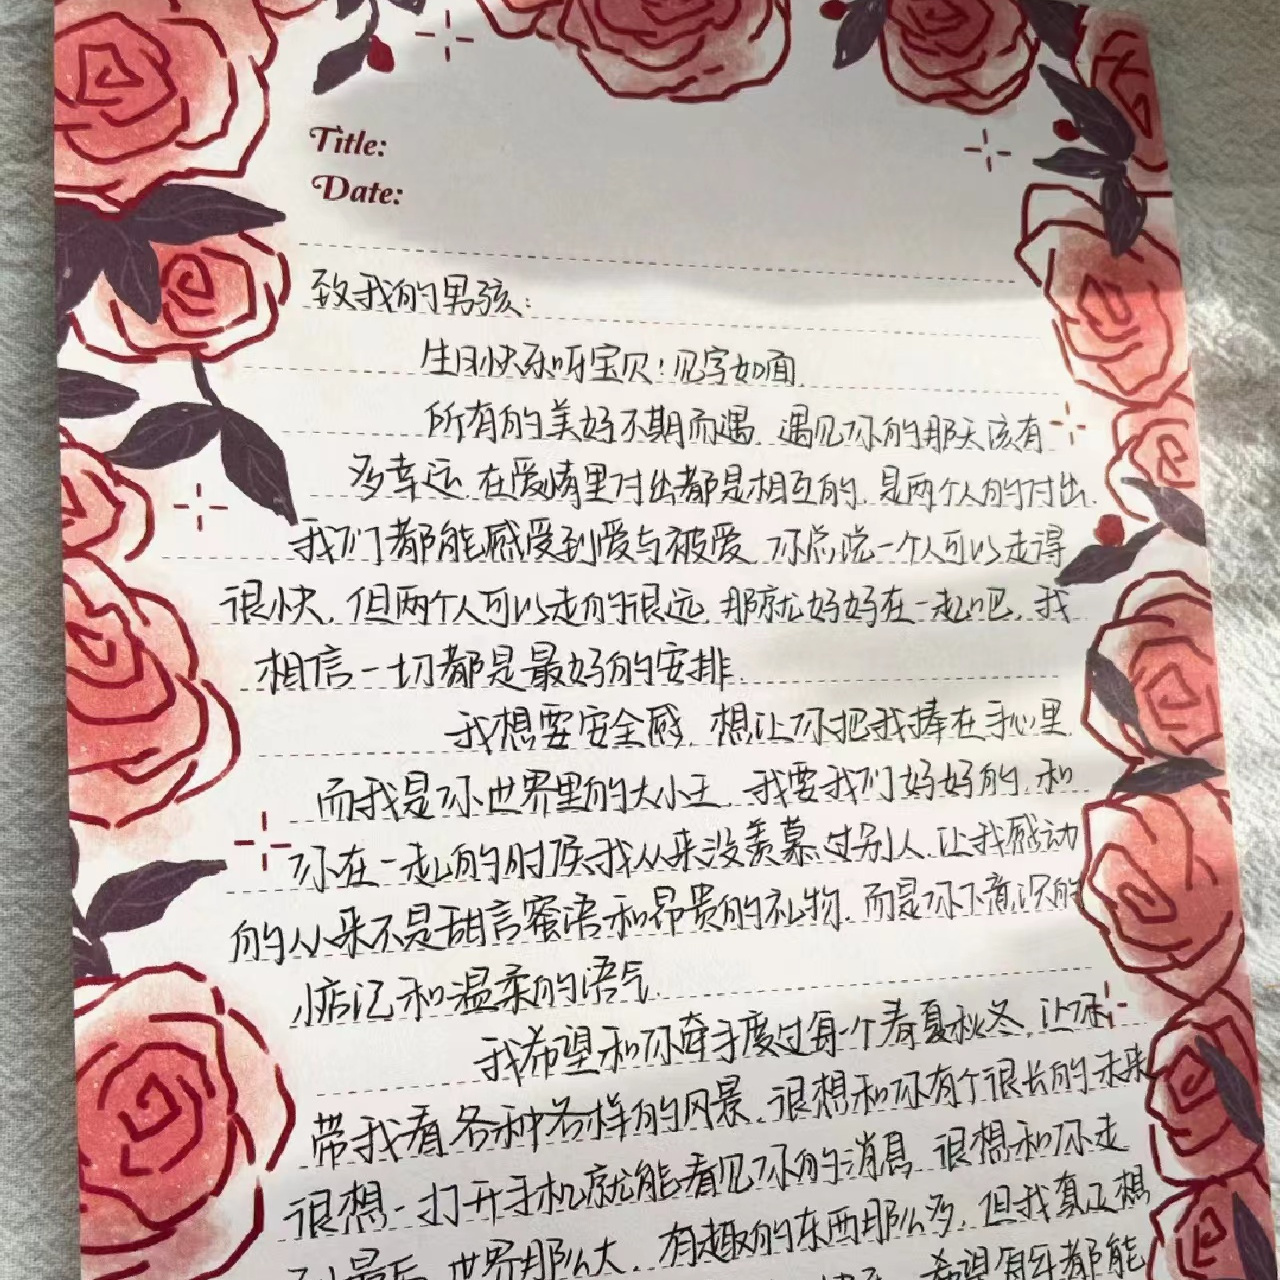 Title:
Date:
致我的男孩:
生日快乐呀宝贝!见字如面.
所有的美好不期而遇.遇见你的那天该有
多幸运.在爱情里付出都是相互的.是两个人的付出.
我们都能感受到爱与被爱.你总说一个人可以走得
很快.但两个人可以走的很远.那就好好在一起吧.我
相信一切都是最好的安排.
我想要安全感.想让你把我捧在手心里.
而我是你世界里的大小王.我要我们好好的.和
你在一起的时候我从来没羡慕过别人.让我感动
的从来不是甜言蜜语和昂贵的礼物.而是你下意识的
惦记和温柔的语气.
我希望和你牵手度过每一个春夏秋冬.让你
带我看各种各样的风景.很想和你有个很长的未来
很想一打开手机就能看见你的消息.很想和你走
到最后.世界那么大.有趣的东西那么多.但我真正想
希望每年都能